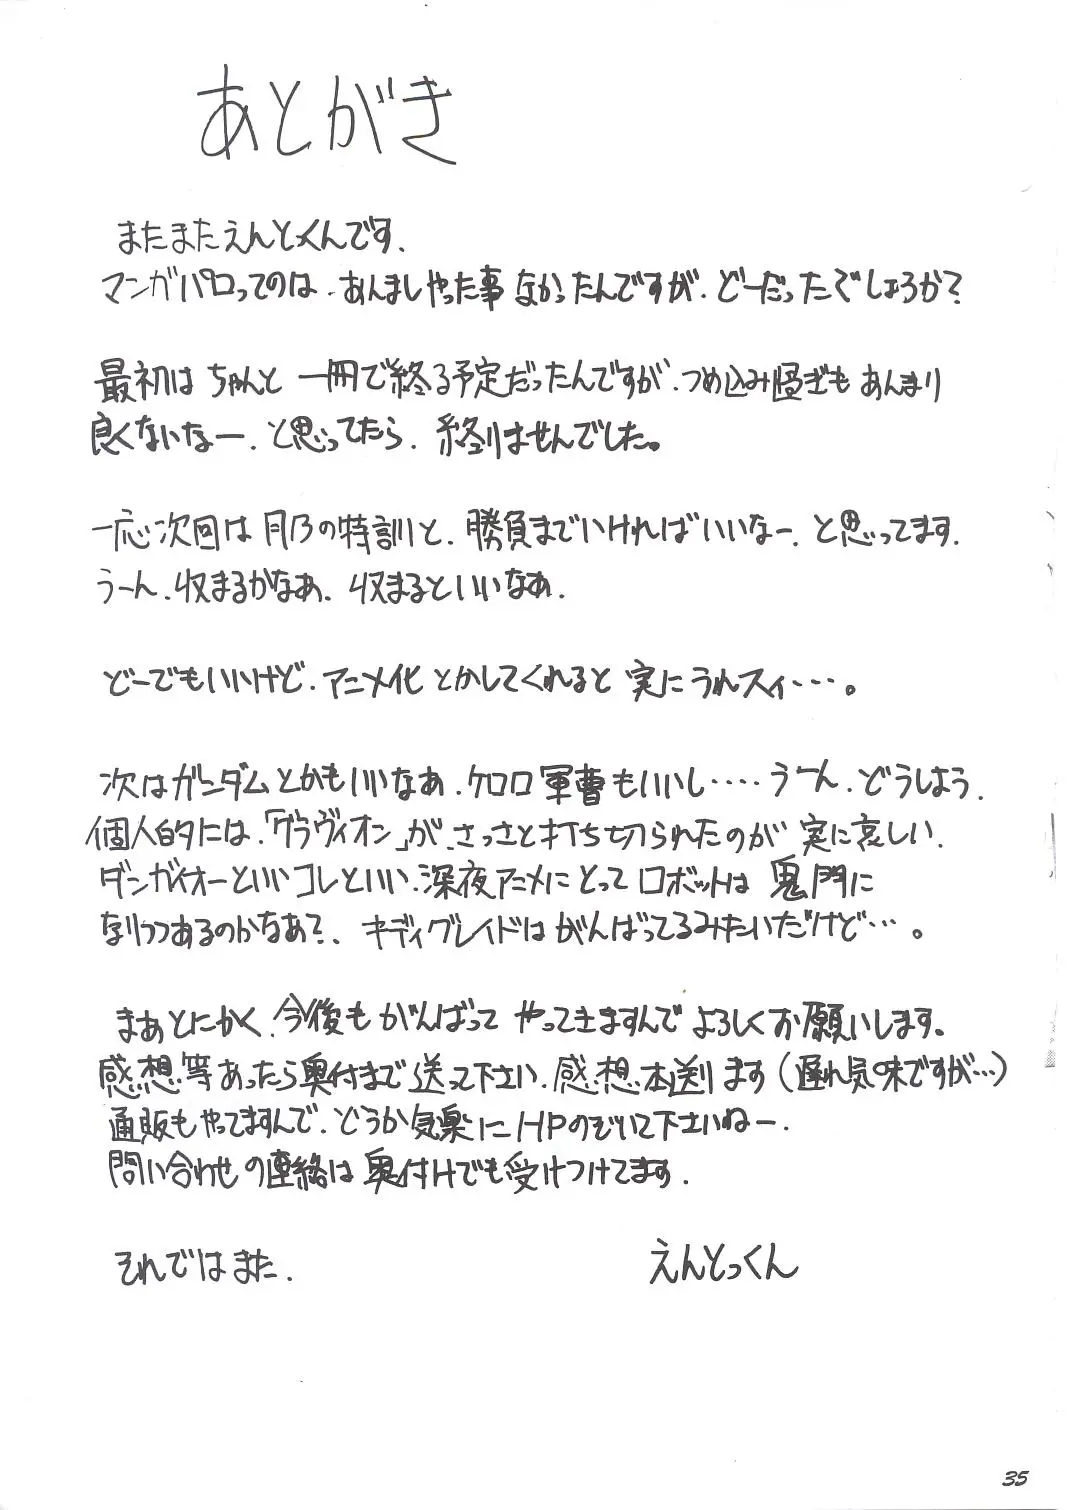 あとがき
またまたえんとっくんです.
マンガパロってのは.あんましやった事なかったんですが.どーだったでしょうか?
最初はちゃんと一冊で終る予定だったんですが.つめ込み過ぎもあんまり
良くないなー.と思ってたら.終りませんでした。
一応次回は月乃の特訓と.勝負までいければいいなー.と思ってます.
うーん.収まるかなぁ.収まるといいなぁ.
どーでもいいけど.アニメ化とかしてくれると実にうれスィ・・・。
次はガンダムとかもいいなぁ.ケロロ軍曹もいいし・・・・うーん.どうしよう.
個人的には.「グラヴィオン」が.さっさと打ち切られたのが実に哀しい.
ダンガイオーといいコレといい.深夜アニメにとってロボットは鬼門に
なりつつあるのかなあ?.キディグレイドはがんばってるみたいだけど・・・。
まぁとにかく.今後もがんばってやってきますんでよろしくお願いします。
感想等あったら奥付まで送って下さい.感想本送ります(遅れ気味ですが・・・)
通販もやってますんで.どうか気楽にHPのぞいて下さいねー.
問い合わせの連絡は奥付けでも受けつけてます.
それではまた.
えんとっくん
35